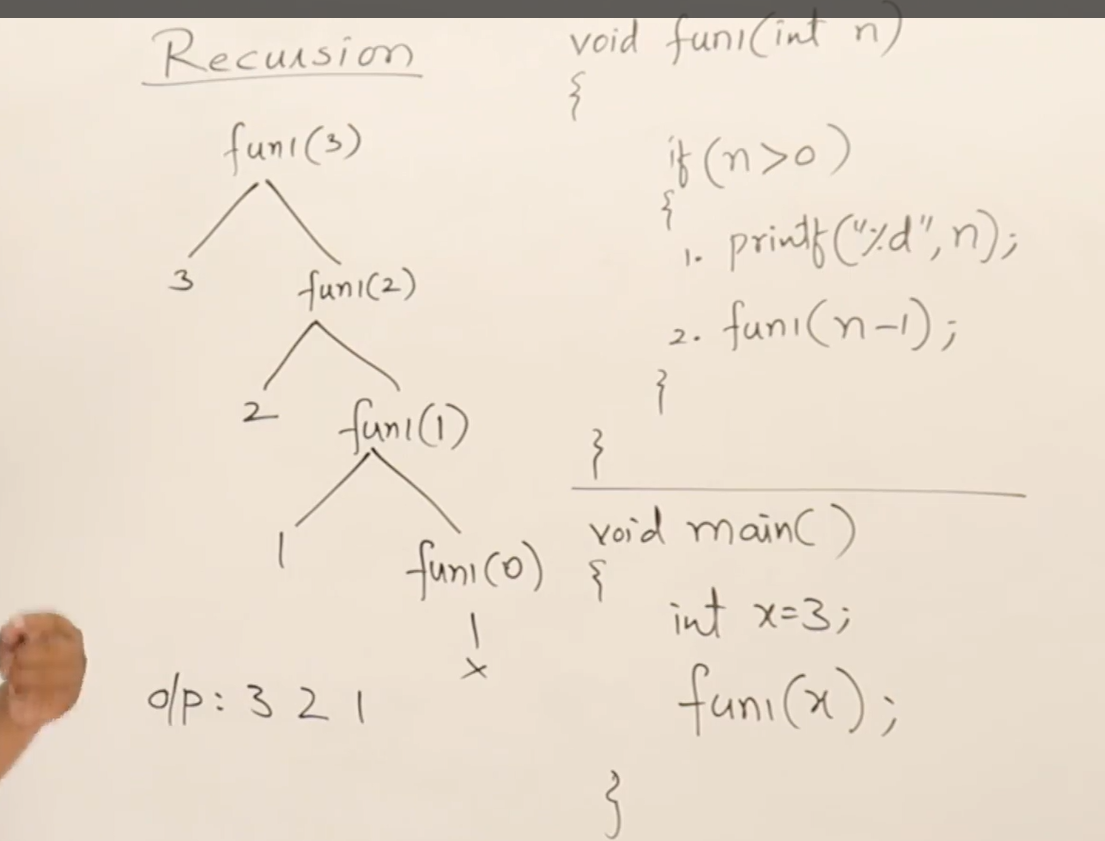 Recursion
fun1(3)
3
fun1(2)
2
fun1(1)
1
fun1(0)
x
o/p: 3 2 1
void fun1(int n)
{
if(n>0)
{
1. printf("%d", n);
2. fun1(n-1);
}
}
void main()
{
int x=3;
fun1(x);
}